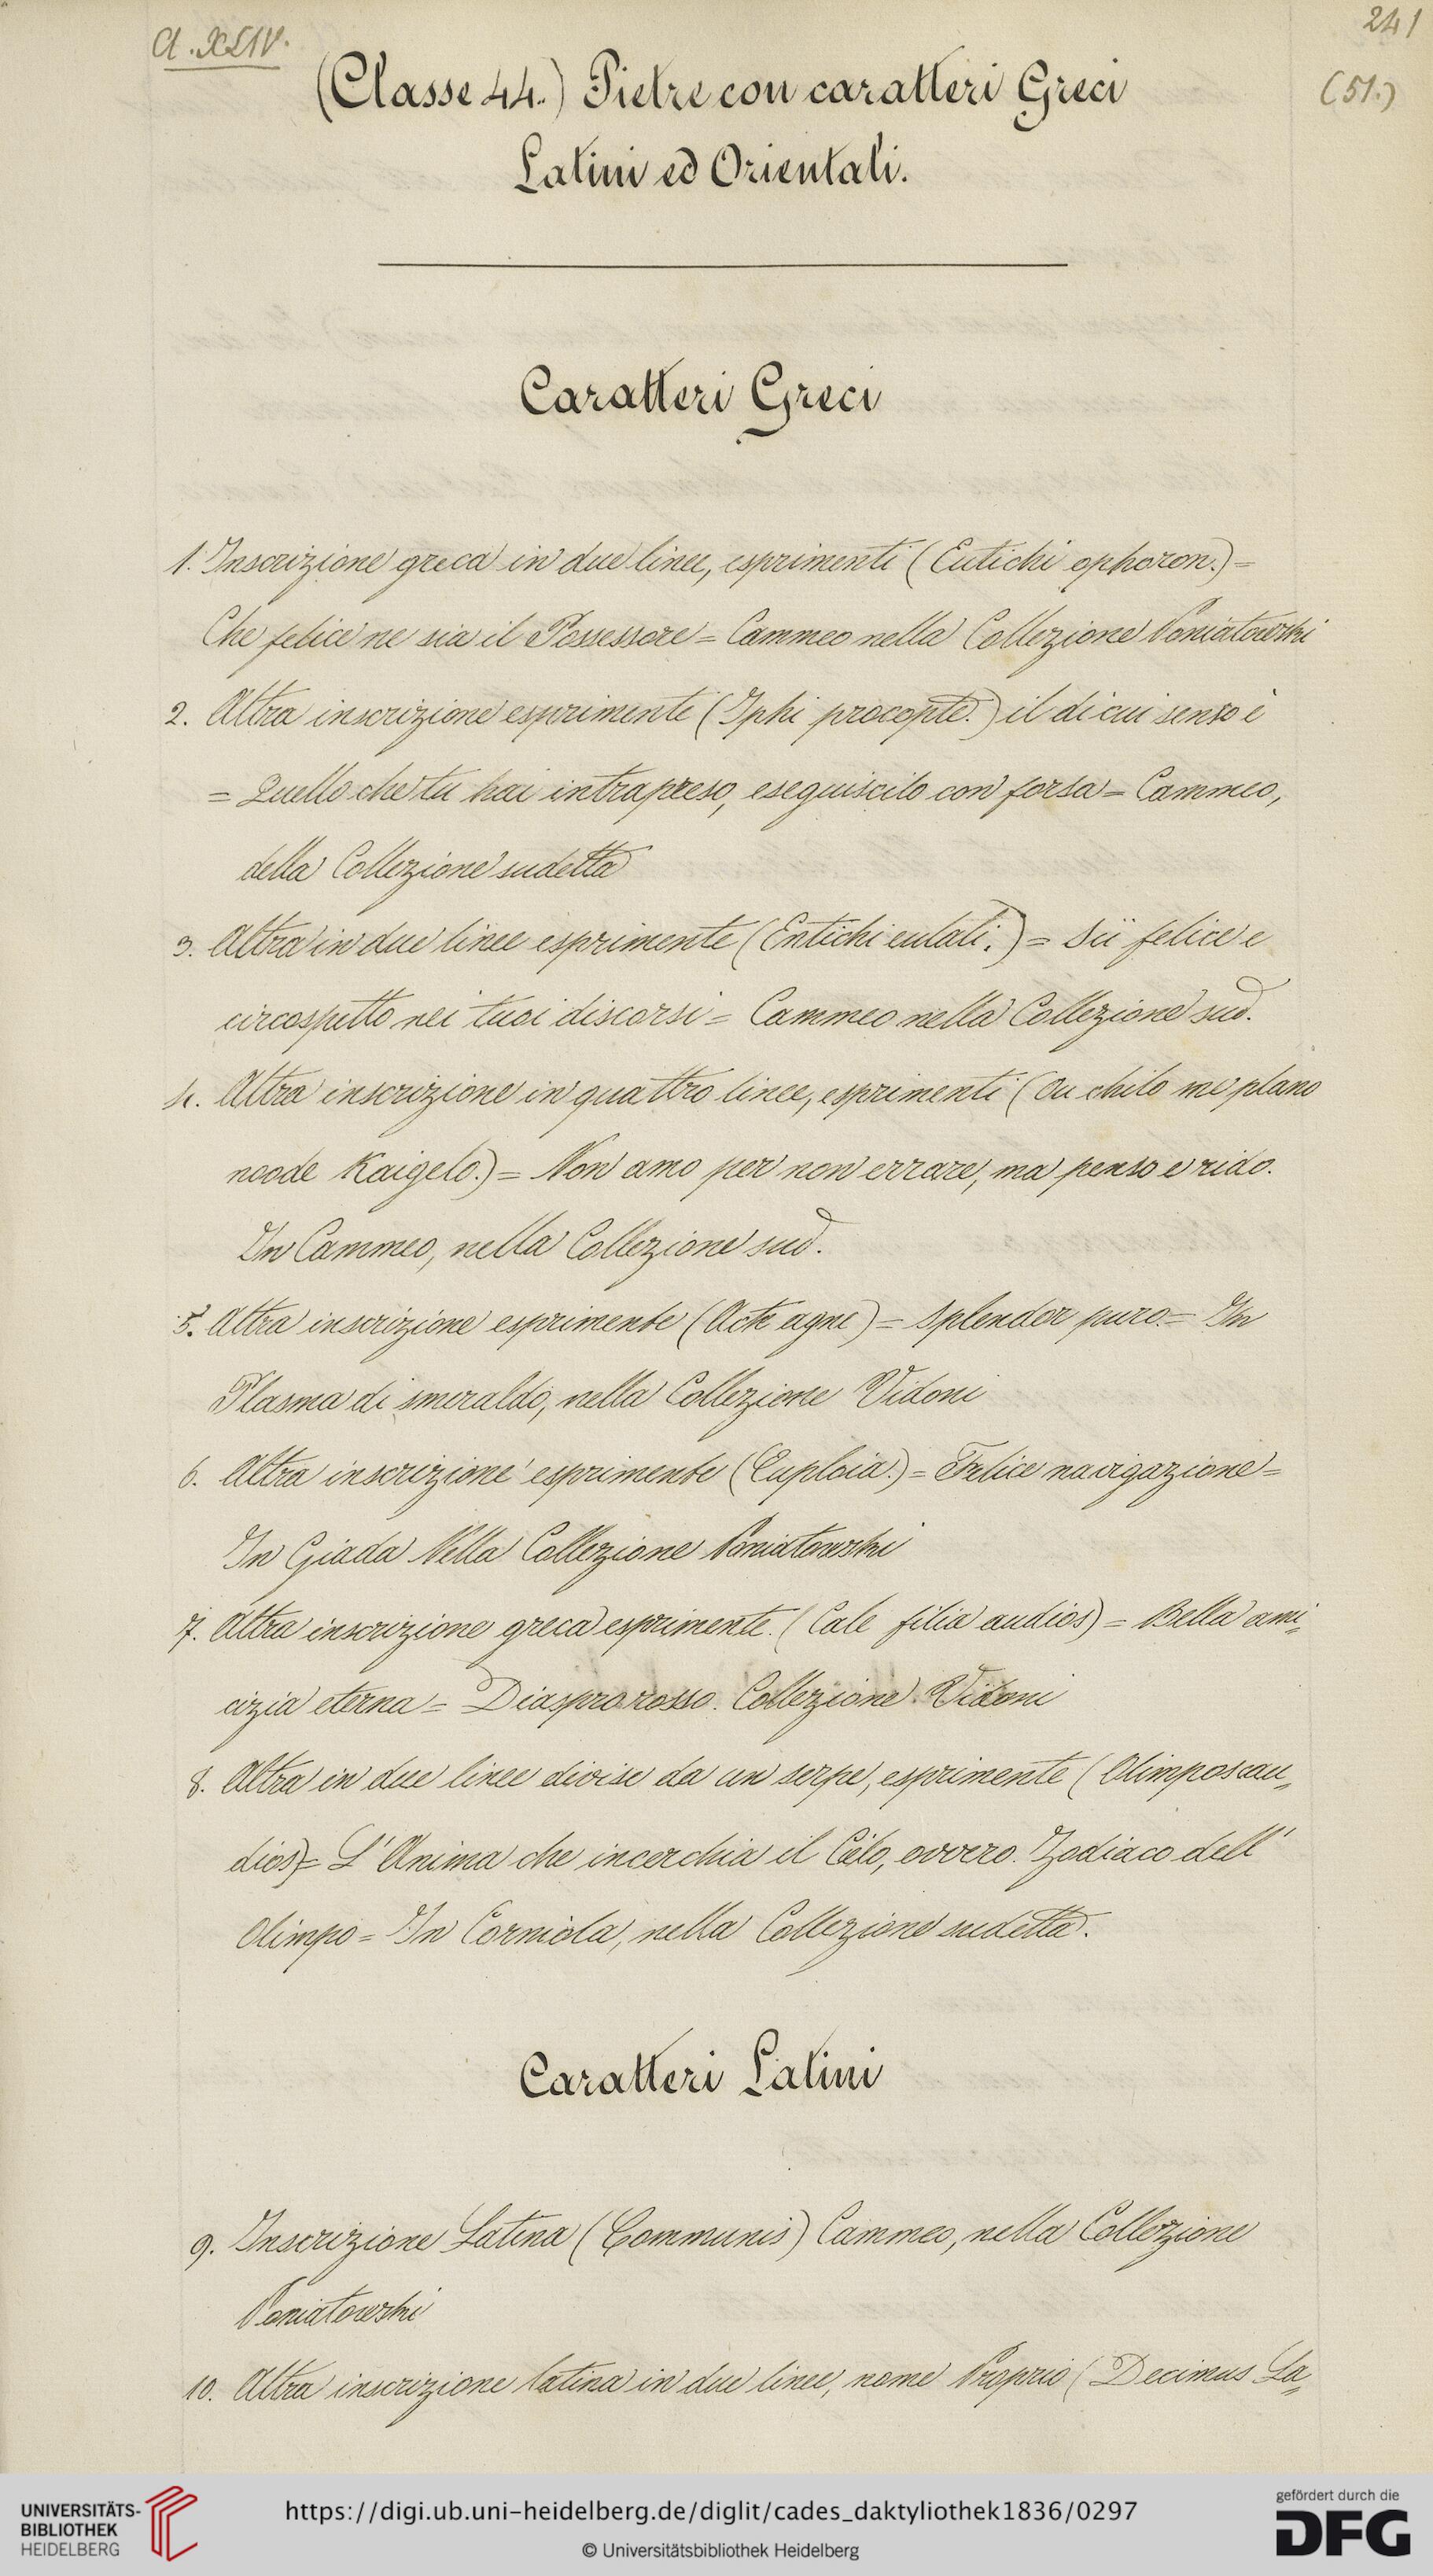 Cl. XLIV.
241
(51.)
(Classe 44.) Pietre con caratteri Greci
Latini ed Orientali.
Caratteri Greci
1. Inscrizione greca in due linee, esprimenti (Eutichi ophoron.) =
Che felice ne sia il Possessore = Cammeo nella Collezione Poniatowski
2. Altra inscrizione esprimente (Iphi procopte.) il di cui senso è
= Quello che tu hai intrapreso, eseguiscilo con forsa = Cammeo,
della Collezione sudetta
3. Altra in due linee esprimente (Entichi eulali.) = Sii felice e
circospetto nei tuoi discorsi = Cammeo nella Collezione sud.
4. Altra inscrizione in quattro linee, esprimenti (Ou chilo me plano
noode Kaigelo.) = Non amo per non errare, ma penso e rido.
In Cammeo, nella Collezione sud.
5. Altra inscrizione esprimente (Acte agne) = Splendor puro = In
Plasma di smeraldo, nella Collezione Vidoni
6. Altra inscrizione esprimente (Euploia.) = Felice navigazione =
In Giada Nella Collezione Poniatowski
7. Altra inscrizione greca esprimente. (Cale filia audios) = Bella ami„
cizia eterna = Diaspro rosso. Collezione Vidoni
8. Altra in due linee divise da un serpe, esprimente (Olimpos au„
dios) = L'Anima che incerchia il Cielo, ovvero. Zodiaco dell'
Olimpo = In Corniola, nella Collezione sudetta.
Caratteri Latini
9. Inscrizione Latina (Communis) Cammeo, nella Collezione
Poniatowski
10. Altra inscrizione latina in due linee, nome Proprio (Decimus La„
UNIVERSITÄTS-
BIBLIOTHEK
HEIDELBERG
https://digi.ub.uni-heidelberg.de/diglit/cades_daktyliothek1836/0297
© Universitätsbibliothek Heidelberg
gefördert durch die
DFG